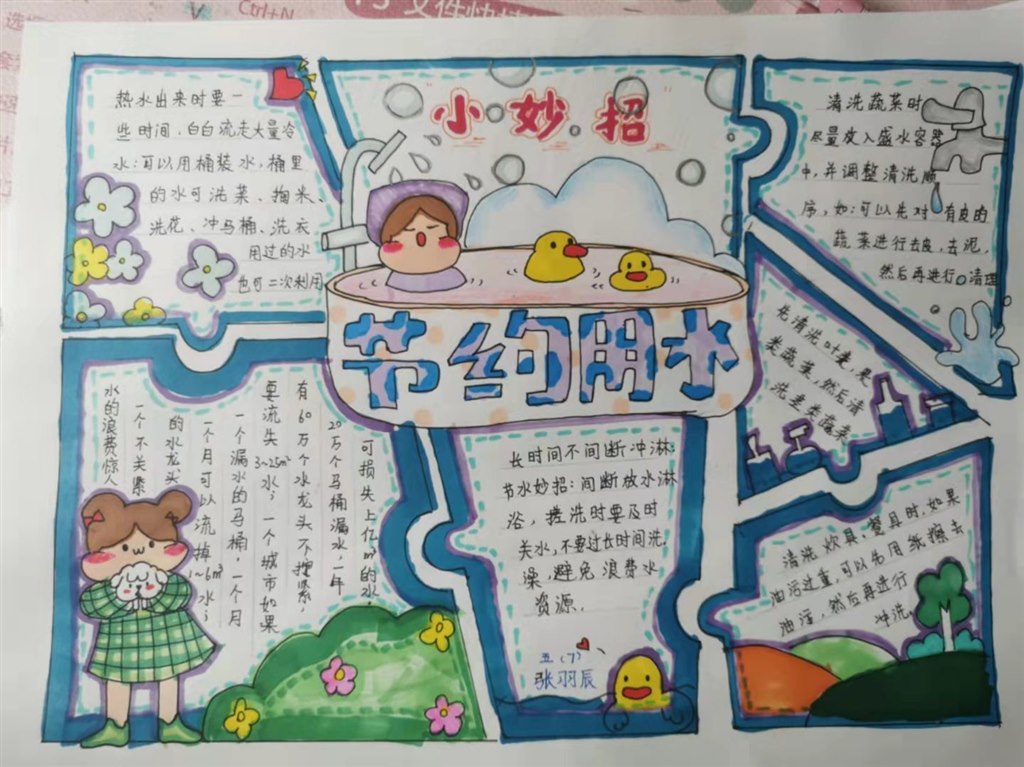 Ctrl+N
小妙招
节约用水
热水出来时要一
些时间，白白流走大量冷
水：可以用桶装水，桶里
的水可洗菜、掏米、
洗花、冲马桶、洗衣
用过的水
也可二次利用
清洗蔬菜时
尽量放入盛水容器
中，并调整清洗顺
序，如：可以先对有皮的
蔬菜进行去皮，去泥，
然后再进行清理
先清洗叶类，果
类蔬菜，然后清
洗茎类蔬菜
水的浪费惊人
一个不关紧
的水龙头
一个月可以流掉1~6m³水；
一个漏水的马桶，一个月
要流失3~25m³水；一个城市如果
有60万个水龙头不拧紧，
20万个马桶漏水，一年
可损失上亿m³的水，
长时间不间断冲淋
节水妙招：间断放水淋
浴，搓洗时要及时
关水，不要过长时间洗
澡，避免浪费水
资源、
五（7）
张羽辰
清洗炊具、餐具时，如果
油污过重，可以先用纸擦去
油污，然后再进行
冲洗